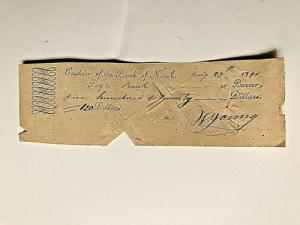 Cashier of the Bank of N. A. July 27th 179
Pay to or Bearer,
one hundred & twenty Dollars.
120 Dollars.
W Young